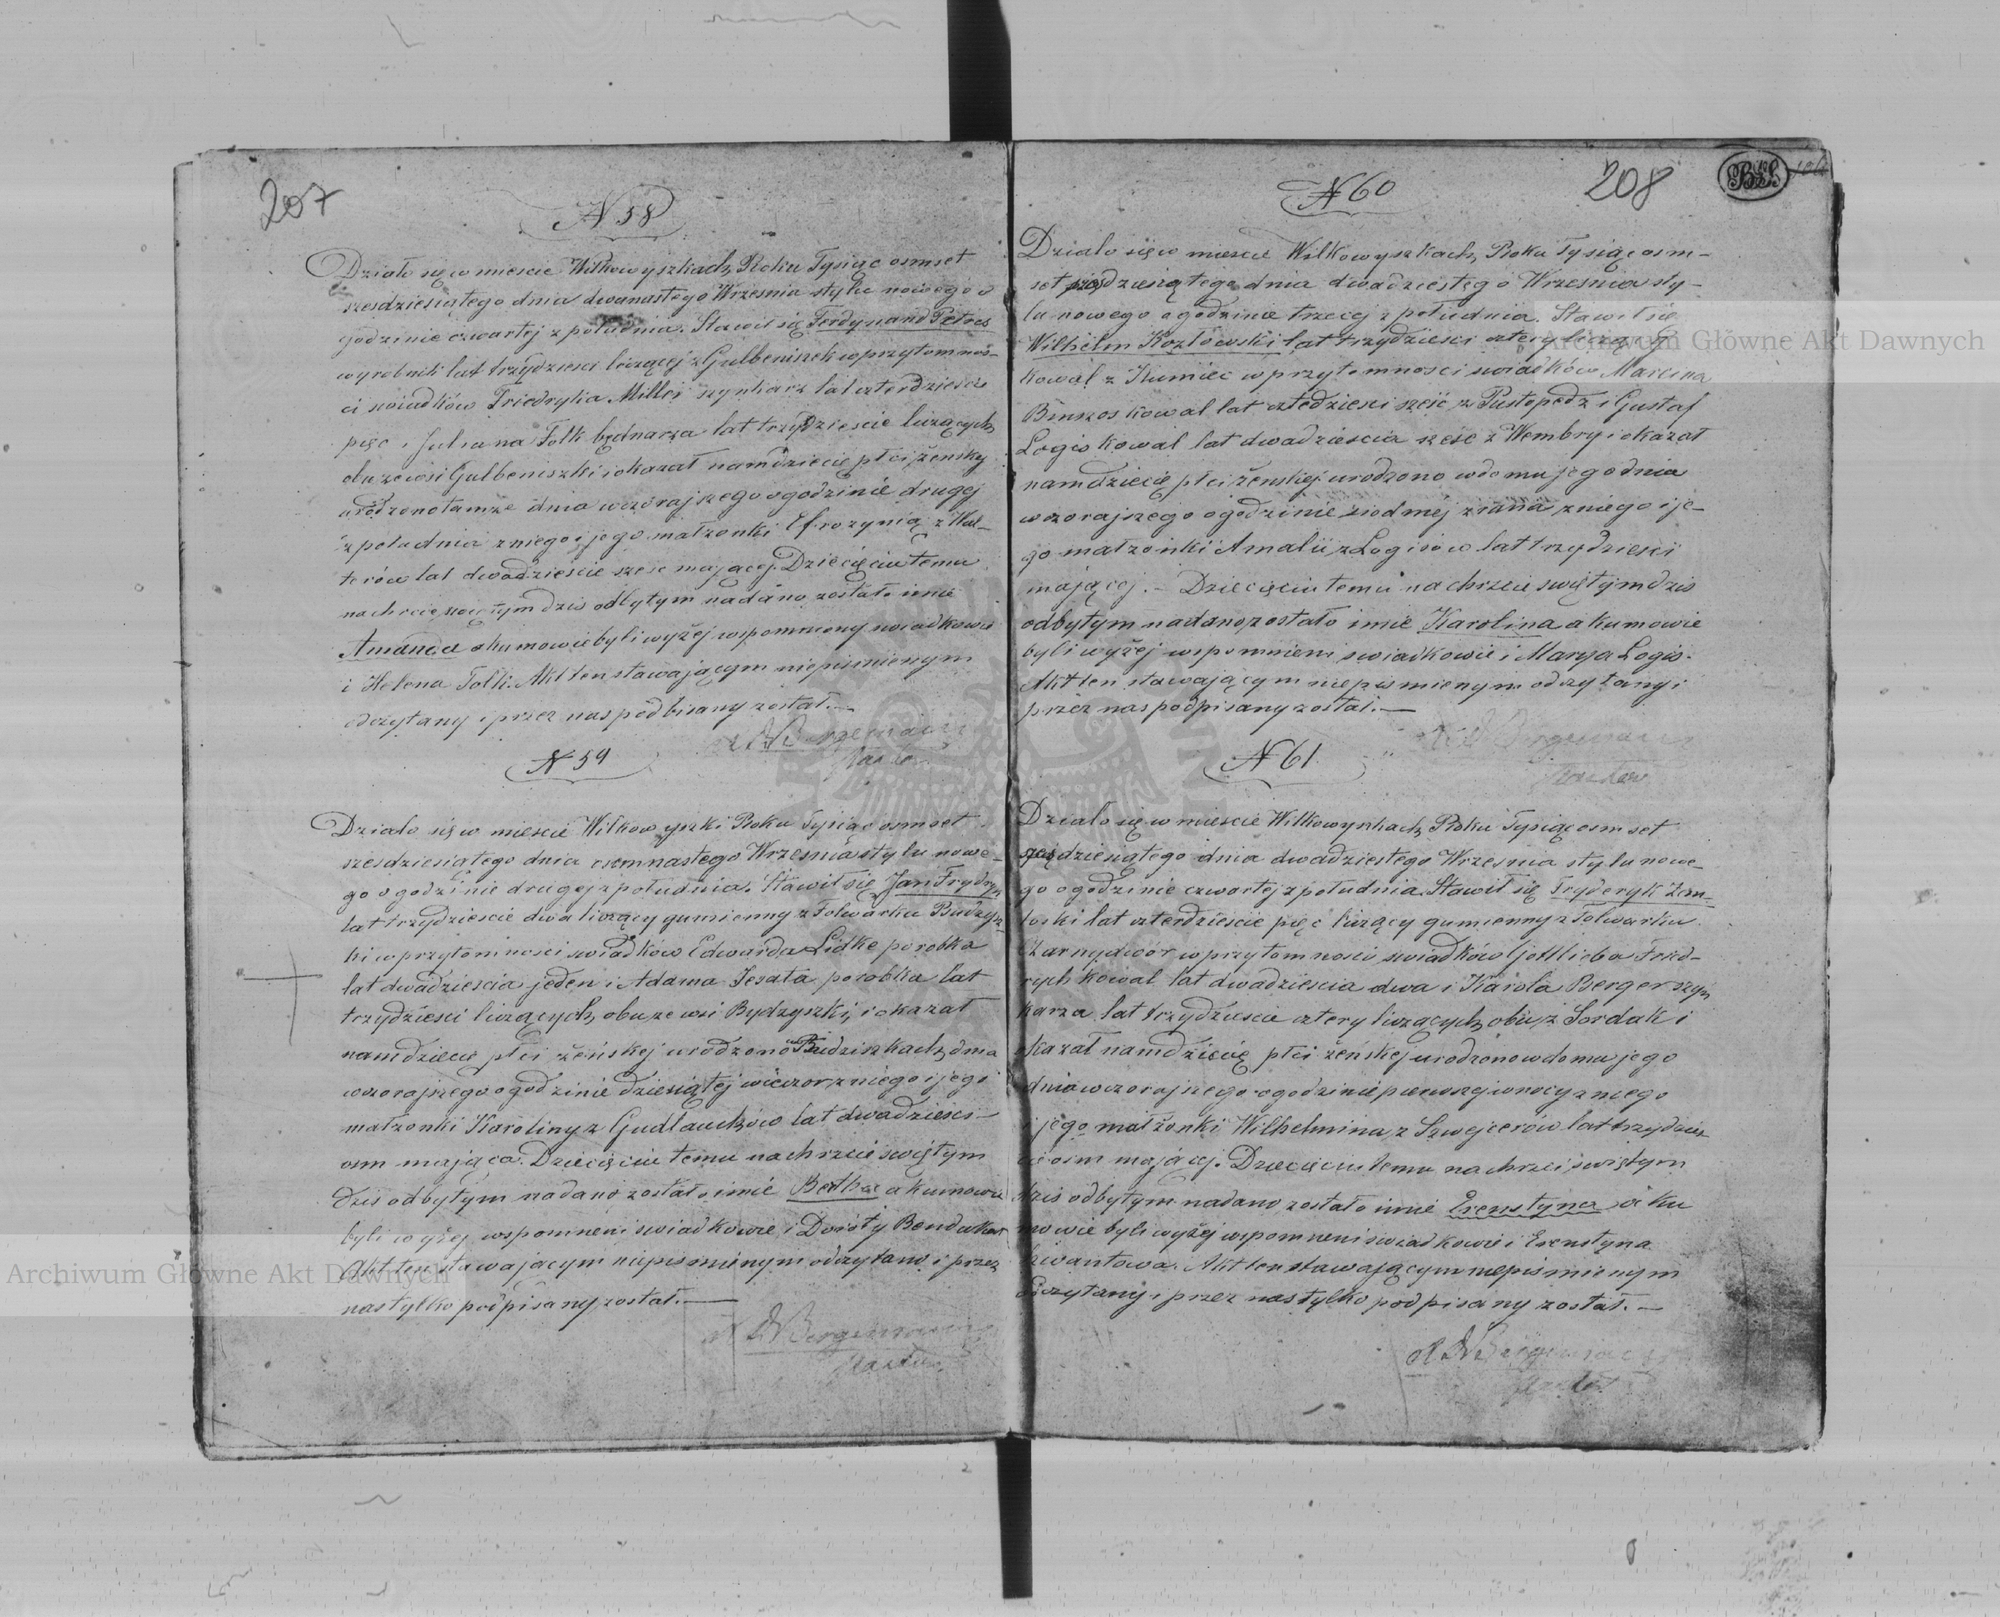 207
N 58
Działo się w miescie Wilkowyszkach Roku Tysiąc osmset
szesdziesiątego dnia dwunastego Wrzesnia stylu nowego o
godzinie czwartej z południa. Stawił się Ferdynand Petres
wyrobnik lat trzydziesci liczącej z Gulbeniszek w przytomnoś-
ci swiadków Friedryka Miller szynkarz lat czterdziescie
pięc i Juliana Tolk bednarza lat trzydziescie liczących
obu ze wsi Gulbeniszki i okazał nam dziecię płci żensky
urodzono tamze dnia wczorajszego o godzinie drugej
z południa z niego i jego małzonki Efrozynią z Wal-
terów lat dwadziescie szesc mającej. Dziecięciu temu
na chrcie swiętym dzis odbytym nadano zostało imie
Amanda a kumowie byli wyżej wspomniony swiadkowie
i Helena Tolk. Akt ten stawającym niepismienym
odczytany i przez nas podpisany został.—
Bergemann
Pastor
N 59
Działo się w miescie Wilkowyszki Roku Tysiąc osmset
szesdziesiątego dnia osmnastego Wrzesnia stylu nowe-
go o godzinie drugej z południa. Stawił się Jan Frydryk
lat trzydziescie dwa liczący gumienny z Folwarku Budzysz-
ki w przytomnosci swiadków Edwarda Lidke parobka
lat dwadziescia jeden i Adama Jesata parobka lat
trzydziesci liczących, obu ze wsi Bydzyszki, i okazał
nam dziecie płci żeńskej urodzono w Budziszkach dnia
wczorajszego o godzinie dziesiątej wieczor z niego i jego
małzonki Karoliny z Gudlauchów lat dwadziesci-
osm mająca. Dziecięciu temu na chrzcie swiętym
dzis odbytym nadano zostało imie Bertha a kumowie
byli wyżej wspomneni swiadkowie i Doroty
Akt ten stawającym niepismienym odczytano i przez
nas tylko podpisany został.—
Bergemann
Pastor
208
N 60
Działo się w miescie Wilkowyszkach, Roku Tysiąc osm-
set szesdziesiątego dnia dwadziestego Wrzesnia sty-
lu nowego o godzinie trzecej z południa. Stawił się
Wilhelm Kozłowski lat trzydziesci cztery liczący
kowal z Kumiec w przytomnosci swiadków Marcina
Binszos kowal lat cztedziesci szesć z Pustopedz i Gustaf
Logis kowal lat dwadziescia szesc z Wembry i okazał
nam dziecie płci żenskiej urodzono w domu jego dnia
wczorajszego o godzinie siodméj z rana z niego i je-
go małzonki Amalii z Logisów lat trzydziesci
mającej.- Dziecięciu temu na chrzcie swiętym dzis
odbytym nadano zostało imie Karolina a kumowie
byli wyżej wspomnieni swiadkowie i Marya Logis.
Akt ten stawającym niepismienym odczytany i
przez nas podpisany został.—
Bergemann
Pastor
N 61.
Działo się w miescie Wilkowyszkach, Roku Tysiąc osmset
szesdziesiątego dnia dwadziestego Wrzesnia stylu nowe-
go o godzinie czwartej z południa. Stawił się Fryderyk Zam-
loski lat czterdziescie pięc liczący gumienny z Folwarku
Czarnydwór w przytomnosci swiadków Gottlieba Fried-
rych kowal lat dwadziescia dwa i Karola Berger szyn
karza lat trzydziescie cztery liczących, obu z Sordak i
okazał nam dziecię płci żeńskej urodzono w domu jego
dnia wczorajszego o godzinie pierwszej w nocy z niego
i jego małżonki Wilhelmina z Szwejcerów lat trzydzies-
cie osm mającej. Dziecięciu temu na chrzci swiętym
dzis odbytym nadano zostało imie Erenstyna a ku
mowie byli wyżej wspomneni swiadkowie i Erenstyna
Akt ten stawającym niepismienym
odczytany i przez nas tylko podpisany został.—
Bergemann
Pastor
Archiwum Główne Akt Dawnych
Archiwum Główne Akt Dawnych